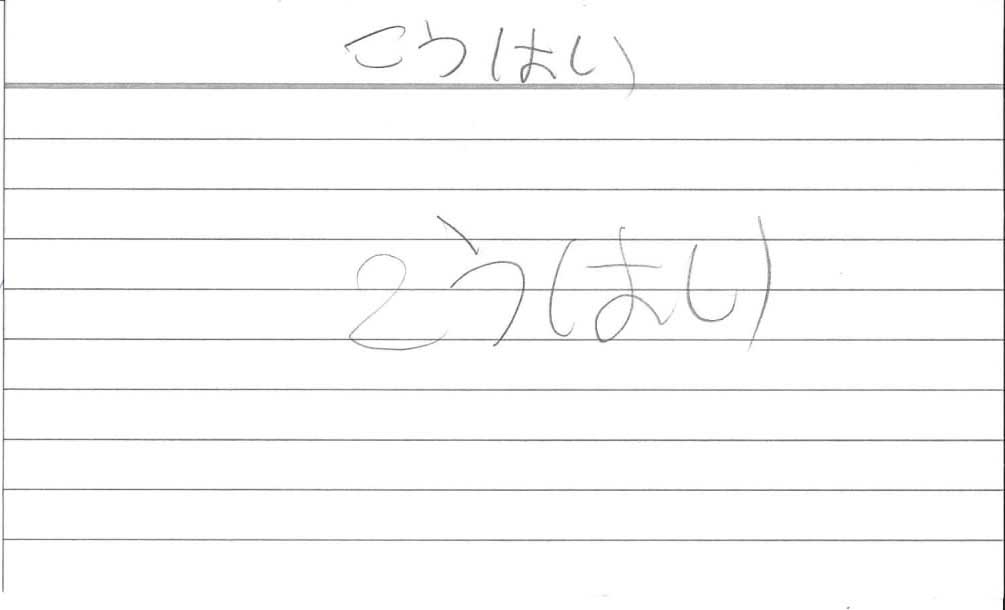 こうはい
こうはい